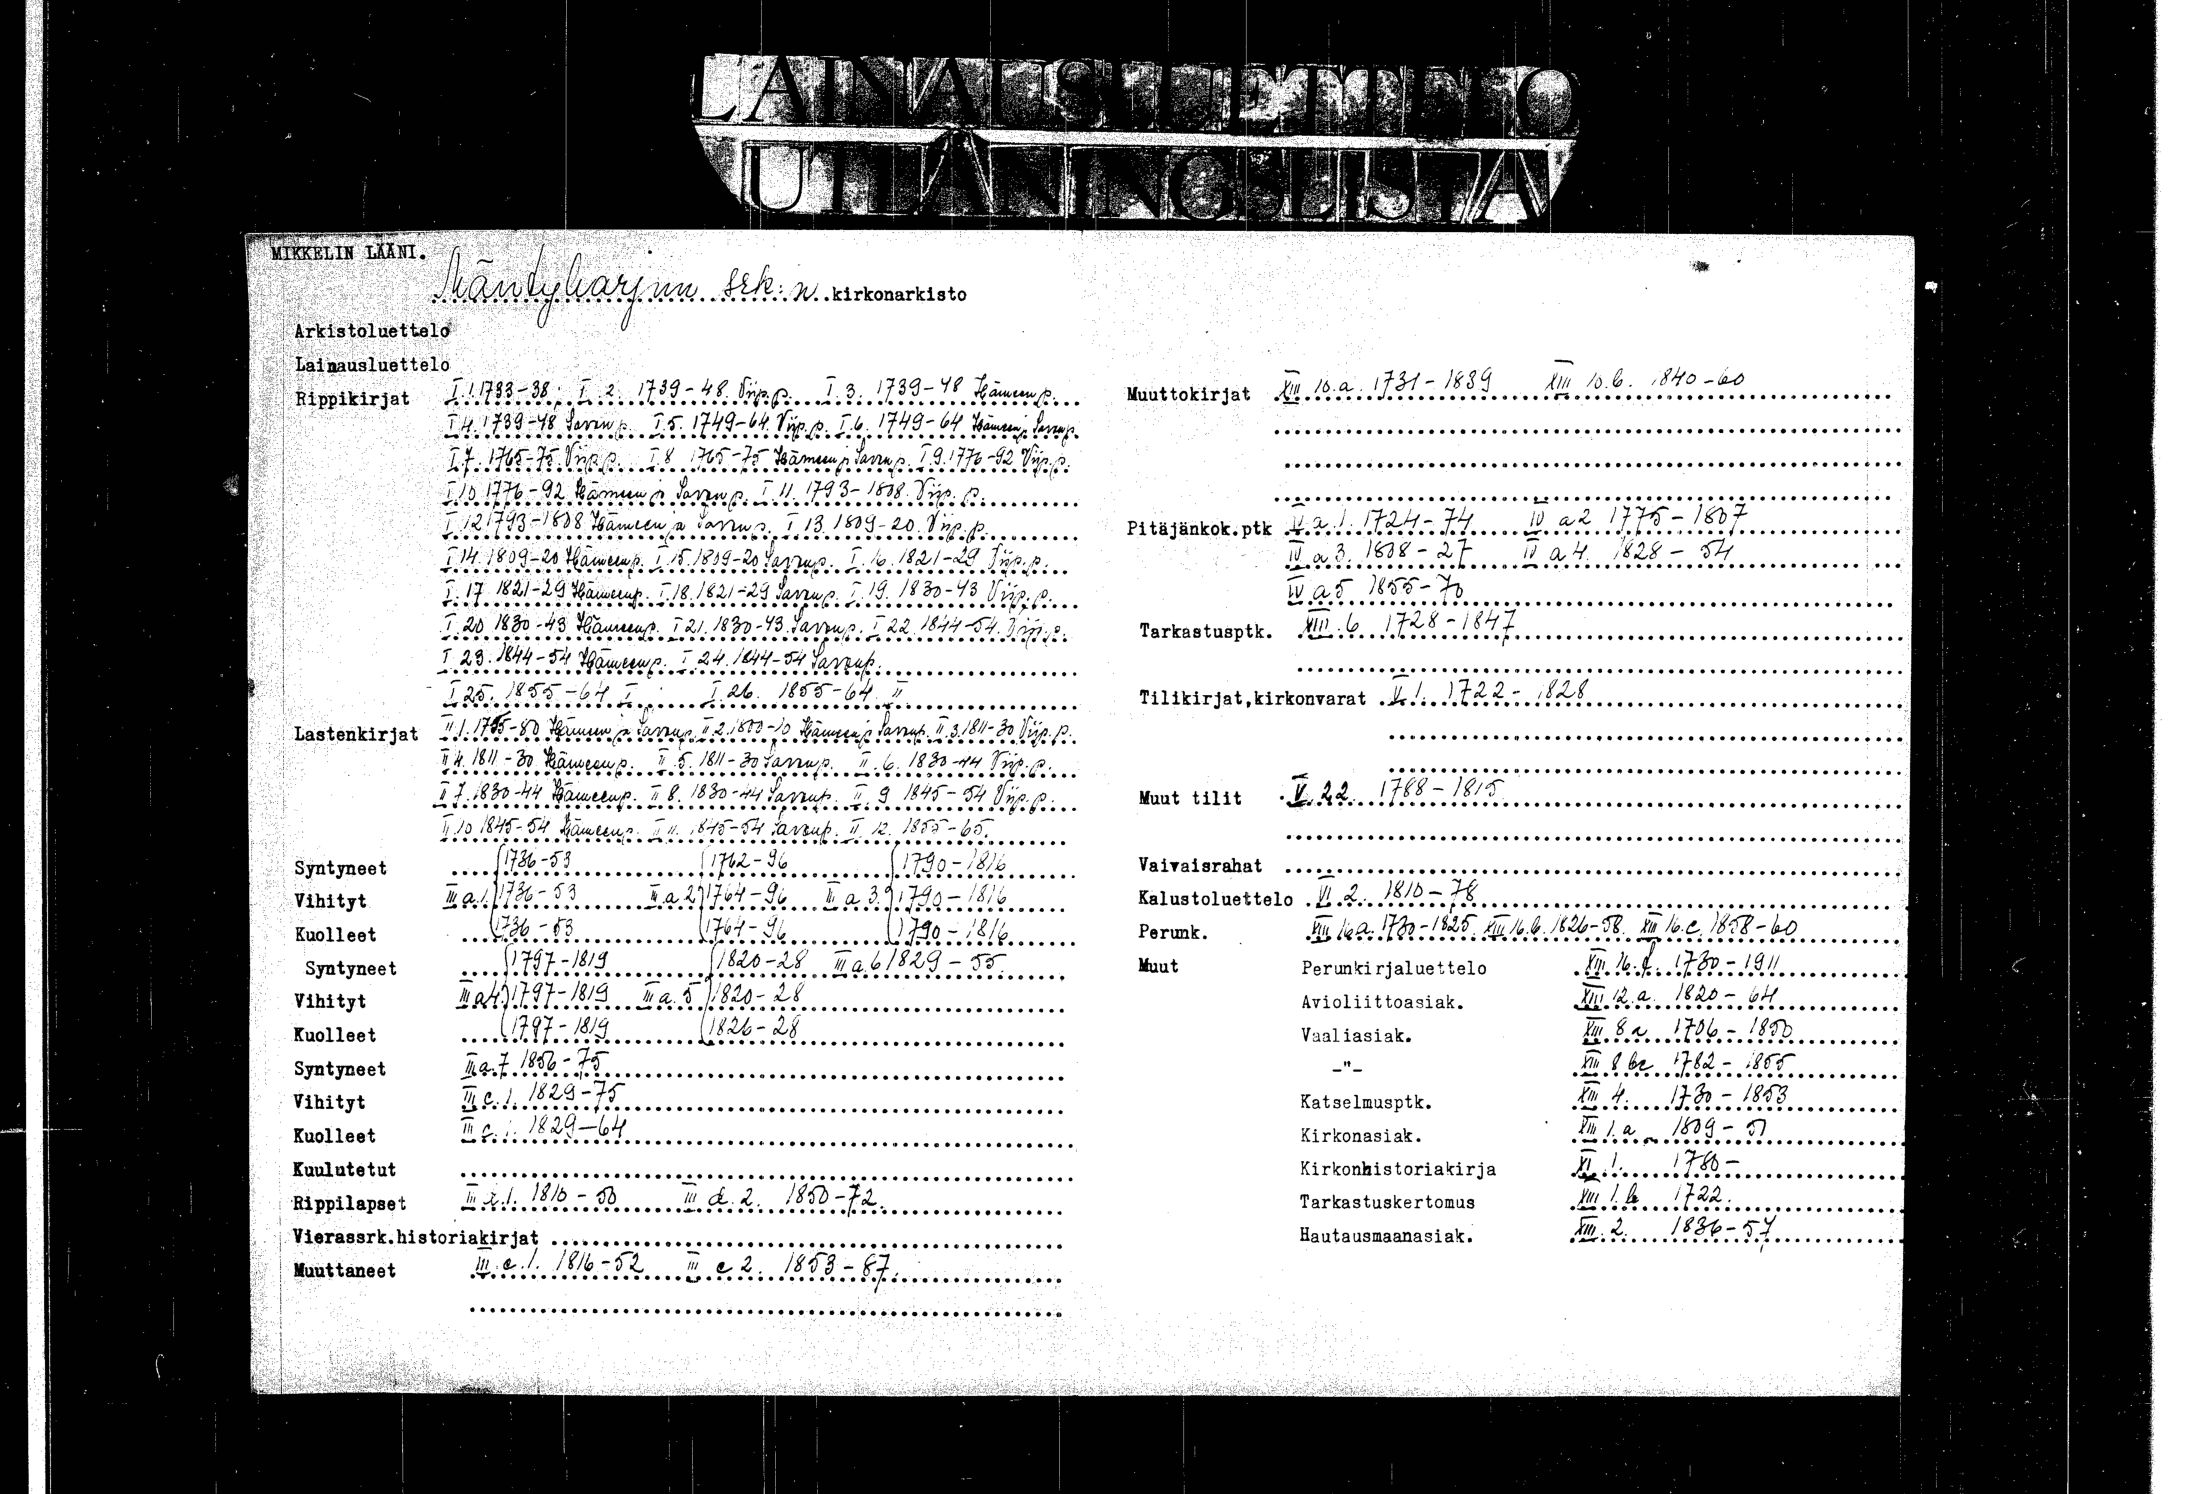 LAINAUSLUETTELO
UTLÅNINGSLISTA
MIKKELIN LÄÄNI.
Mäntyharjun srk:n kirkonarkisto
Arkistoluettelo
Lainausluettelo
Rippikirjat I.1.1733-38; I.2. 1739-48. Viip.p. I.3. 1739-48 Hämeen p.
I 4. 1739-48 Savon p. I.5. 1749-64. Viip.p. I.6. 1749-64 Hämeen ja Savon p.
I.7. 1765-75. Viip.p. I.8 1765-75 Hämeen ja Savon p. I.9. 1776-92 Viip.p.
I.10 1776-92 Hämeen ja Savon p. I.11. 1793-1808. Viip.p.
I.12 1793-1808 Hämeen ja Savon p. I 13. 1809-20. Viip.p.
I 14. 1809-20 Hämeen p. I.15. 1809-20 Savon p. I.16. 1821-29 Viip.p.
I.17 1821-29 Hämeen p. I.18. 1821-29 Savon p. I.19. 1830-43 Viip.p.
I 20 1830-43 Hämeen p. I 21. 1830-43. Savon p. I 22. 1844-54. Viip.p.
I 23. 1844-54 Hämeen p. I.24. 1844-54 Savon p.
I 25. 1855-64 I I.26. 1855-64. II
Lastenkirjat II 1. 1755-80 Hämeen ja Savon p. II 2. 1800-10 Hämeen ja Savon p. II 3. 1811-30 Viip.p.
II 4. 1811-30 Hämeen p. II.5. 1811-30 Savon p. II.6. 1830-44 Viip.p.
II 7. 1830-44 Hämeen p. II 8. 1830-44 Savon p. II.9 1845-54 Viip.p.
II.10 1845-54 Hämeen p. II 11. 1845-54 Savon p. II. 12. 1855-65.
Syntyneet 1736-53 1762-96 1790-1816
Vihityt III a.1. 1736-53 III a 2 1764-96 III a 3. 1790-1816
Kuolleet 1736-53 1764-96 1790-1816
Syntyneet 1797-1819 1820-28 III a.6 1829-55
Vihityt III a 4. 1797-1819 III a. 5 1820-28
Kuolleet 1797-1819 1826-28
Syntyneet III a.7 1856-75
Vihityt III c.1. 1829-75
Kuolleet III c.1. 1829-64
Kuulutetut
Rippilapset III d.1. 1810-50 III d.2. 1850-72.
Vierassrk.historiakirjat
Muuttaneet III.e.1. 1816-52 III e 2. 1853-87.
Muuttokirjat XIII 10.a. 1731-1839 XIII 10.b. 1840-60
Pitäjänkok.ptk IV a.1. 1724-74 IV a 2 1775-1807
IV a 3. 1808-27 IV a 4. 1828-54
IV a 5 1855-70
Tarkastusptk. XIII.6 1728-1847
Tilikirjat,kirkonvarat V.1. 1722-1828
Muut tilit V.22. 1788-1815
Vaivaisrahat
Kalustoluettelo VI.2. 1810-78
Perunk. XIII 16a. 1730-1825. XIII 16.b. 1826-58. XIII 16.c. 1858-60
Muut Perunkirjaluettelo XIII.16. 1730-1911
Avioliittoasiak. XIII 12.a. 1820-64
Vaaliasiak. XIII 8 a 1706-1850
-"- XIII 8 1782-1855
Katselmusptk. XIII 4. 1730-1853
Kirkonasiak. XIII 1.a 1809-51
Kirkonhistoriakirja XI.1. 1780-
Tarkastuskertomus XIII 1.b 1722.
Hautausmaanasiak. XIII.2. 1836-57